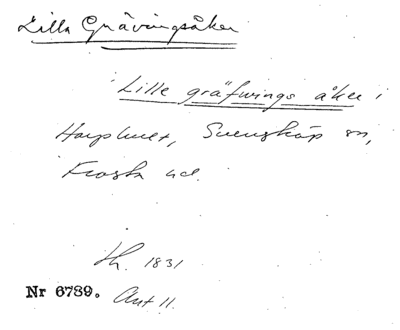 Lilla Grävingsåker
Lille gräfwings åker i
Harphult, Svensköp sn,
Frosta hd.
Th. 1831
Nr 6789. Akt 11.